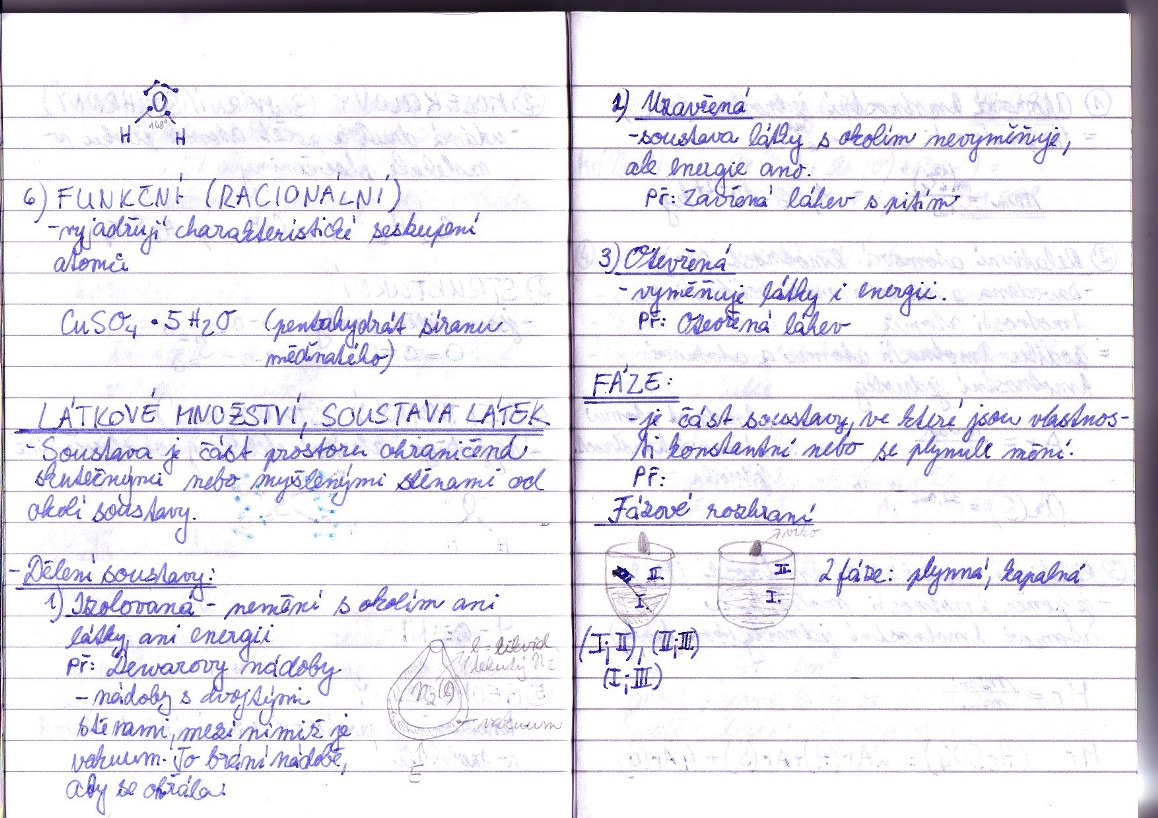 O
108°
H H
6) FUNKČNÍ (RACIONÁLNÍ)
-vyjadřují charakteristické seskupení
atomů
CuSO₄ · 5H₂O (pentahydrát síranu
měďnatého)
LÁTKOVÉ MNOŽSTVÍ, SOUSTAVA LÁTEK
- Soustava je část prostoru ohraničená
skutečnými nebo myšlenými stěnami od
okolí soustavy.
-Dělení soustavy:
1) Izolovaná - nemění s okolím ani
látky, ani energii
PŘ: Dewarovy nádoby
- nádoby s dvojtými
stěnami, mezi nimiž je
vakuum. To brání nádobě,
aby se ohřála.
l - likvid
(tekutý N₂
N₂(l)
- vakuum
E
2) Uzavřená
-soustava látky s okolím nevyměňuje,
ale energie ano.
PŘ: Zavřená láhev s pitím
3) Otevřená
- vyměňuje látky i energii.
PŘ: Otevřená láhev
FÁZE:
-je část soustavy, ve které jsou vlastnos-
ti konstantní nebo se plynule mění.
PŘ:
Fázové rozhraní
víko
III II. II.
I. I.
2 fáze: plynná, kapalná
(I;II), (II;III)
(I;III)